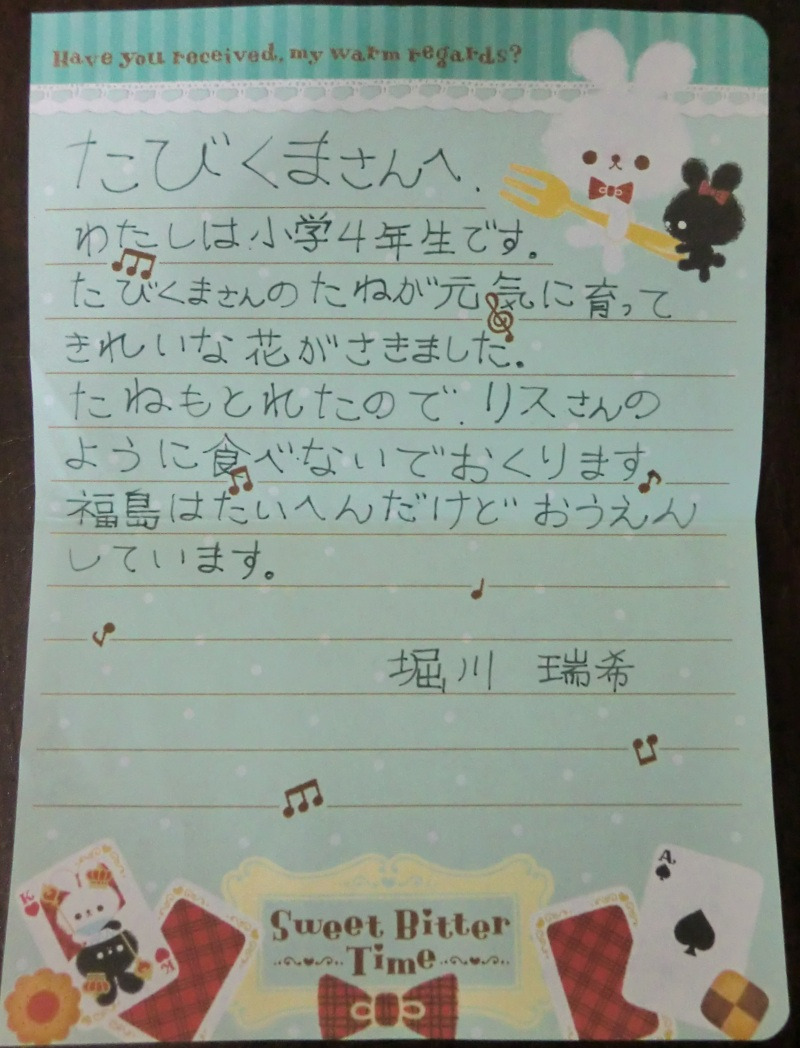 Have you received, my warm regards?
たびくまさんへ.
わたしは小学4年生です。
たびくまさんのたねが元気に育って
きれいな花がさきました。
たねもとれたので.リスさんの
ように食べないでおくります
福島はたいへんだけどおうえん
しています。
堀川 瑞希
K
K
A
Sweet Bitter
Time